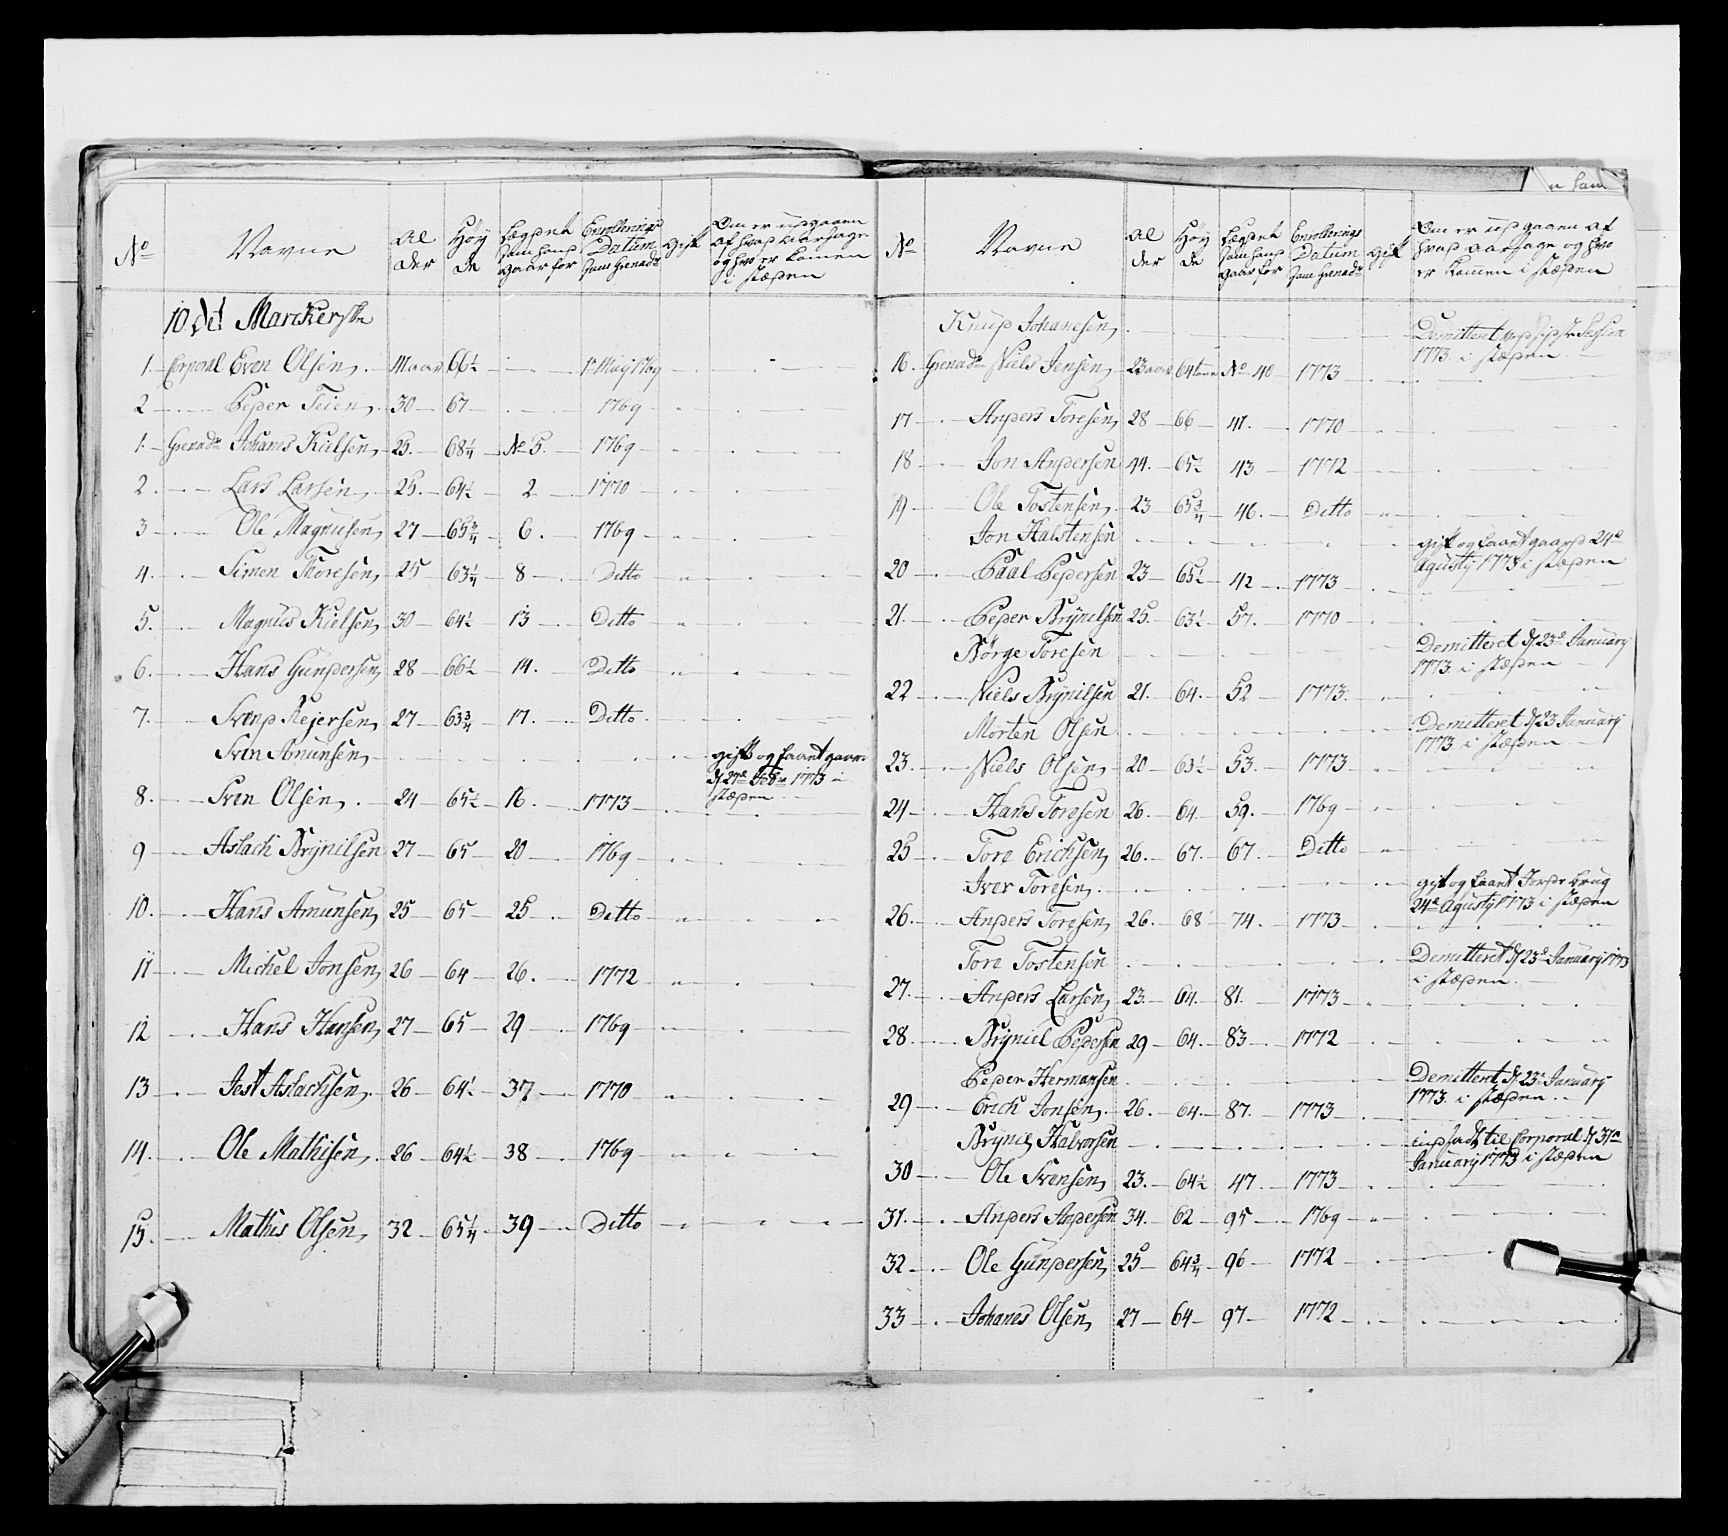 No Navne Al der Høÿ de Lægdet som hand gaar for Enrollerings Datum som Grenadr Gift Om er udgaaen af hvad aarsage og hvo er komen i stæden
10de Marckerske
1. Corporal Even Olsen. 41 aar 66½ 1e Maij 1769
2 Peder Teien 30 67 1769
1. Grenadr Johanes Kielsen, 25. 68¼ No 5. 1769
2. Lars Larsen, 25. 64½ 2 1770
3 Ole Magnusen, 27 65¾ 6. 1769
4. Simen Thoresen, 25 63¼ 8 Ditto
5. Magnus Kielsen, 30 64½ 13 Ditto
6. Hans Gundersen, 28 66½ 14. Ditto
7. Svend Rejersen, 27 63¾ 17. Ditto
Sven Amunsen, gift og faaet gaard d 27e Febr 1773 i stæden
8. Sven Olsen, 24 65½ 16. 1773
9 Aslach Brÿnilsen 27 65 20 1769
10. Hans Amunsen, 25 65 25 Ditto
11 Michel Jonsen, 26 64 26. 1772
12 Hans Hansen, 27 65 29 1769
13 Jest Aslachsen, 26 64½ 37 1770
14. Ole Mathisen, 26 64½ 38 1769
15. Mathis Olsen, 32 65¼ 39 Ditto
No Navne Al der Høÿ de Lægdet som hand gaar for Enrollerings Datum som Grenadr Gift Om er udgaaen af hvad aarsage og hvo er komen i stæden
Knud Johanesen, Demitteret ved sidste Session 1773. i stæden
16. Grenadr Niels Jensen, 23 aar 64 tomr No 40 1773
17 Anders Toresen, 28 66 41. 1770
18 Jon Andersen 44. 65½ 43 1772
19 Ole Tostensen, 23 65¾ 46. Ditto
Jon Halstensen gift og faaet gaard 24e Agustÿ 1773 i stæden
20 Paal Pedersen 23 65½ 42 1773
21. Peder Brÿnilsen 25. 63½ 57. 1770
Børge Toresen Demitteret d 23e Januarÿ 1773. i stæden
22 Niels Brÿnilsen 21. 64. 52 1773.
Morten Olsen Demitteret d 23 Januarÿ 1773 i stæden
23. Niels Olsen, 20 63½ 53. 1773
24 Hans Toresen 26. 64 59. 1769
25 Tore Erichsen, 26. 67. 67. Ditto
Iver Toresen, gift og faaet Jorde brug 24e Agustÿ 1773 i stæden
26. Anders Toresen, 26. 68 74. 1773
Tore Tostensen Demitteret d 23e Januarÿ 1773 i stæden.
27. Anders Larsen, 23. 64. 81. 1773
28. Brÿniel Pedersen 29 64. 83 1772
Peder Hermansen Demitteret d 23e Januarÿ 1773 i stæden.
29 Erich Jonsen. 26. 64. 87. 1773
Brÿniel Halvorsen udsadt til Corporal d 31e Januarÿ 1773 i stæden
30 Ole Svensen, 23. 64½ 47. 1773
31. Anders Andersen 34. 62 95 1769
32 Ole Gundersen, 25 64¾ 96 1772
33 Johanes Olsen, 27 64 97 1772